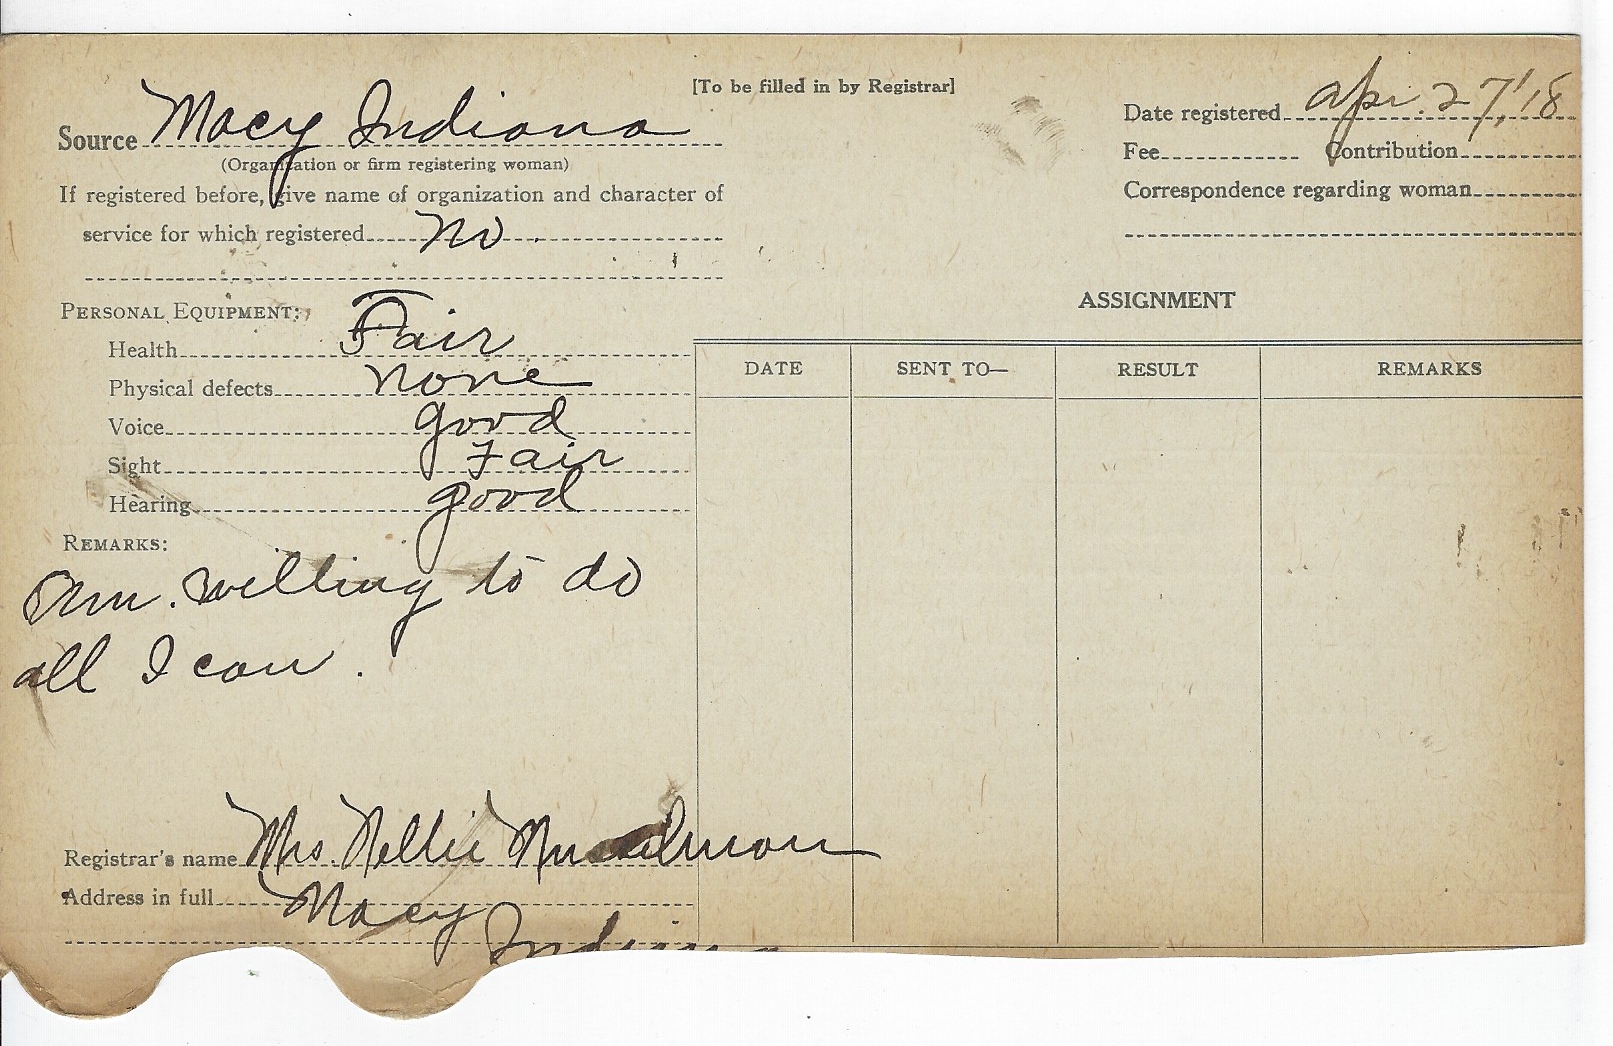 [To be filled in by Registrar]
Source Macy Indiana
(Organization or firm registering woman)
If registered before, give name of organization and character of
service for which registered no.
Date registered Apr. 27,'18
Fee Contribution
Correspondence regarding woman
PERSONAL EQUIPMENT:
Health Fair
Physical defects none
Voice good
Sight Fair
Hearing good
REMARKS:
Am. willing to do
all I can.
ASSIGNMENT
DATE SENT TO— RESULT REMARKS
Registrar's name Mrs. Nellie
Address in full Macy
Indiana